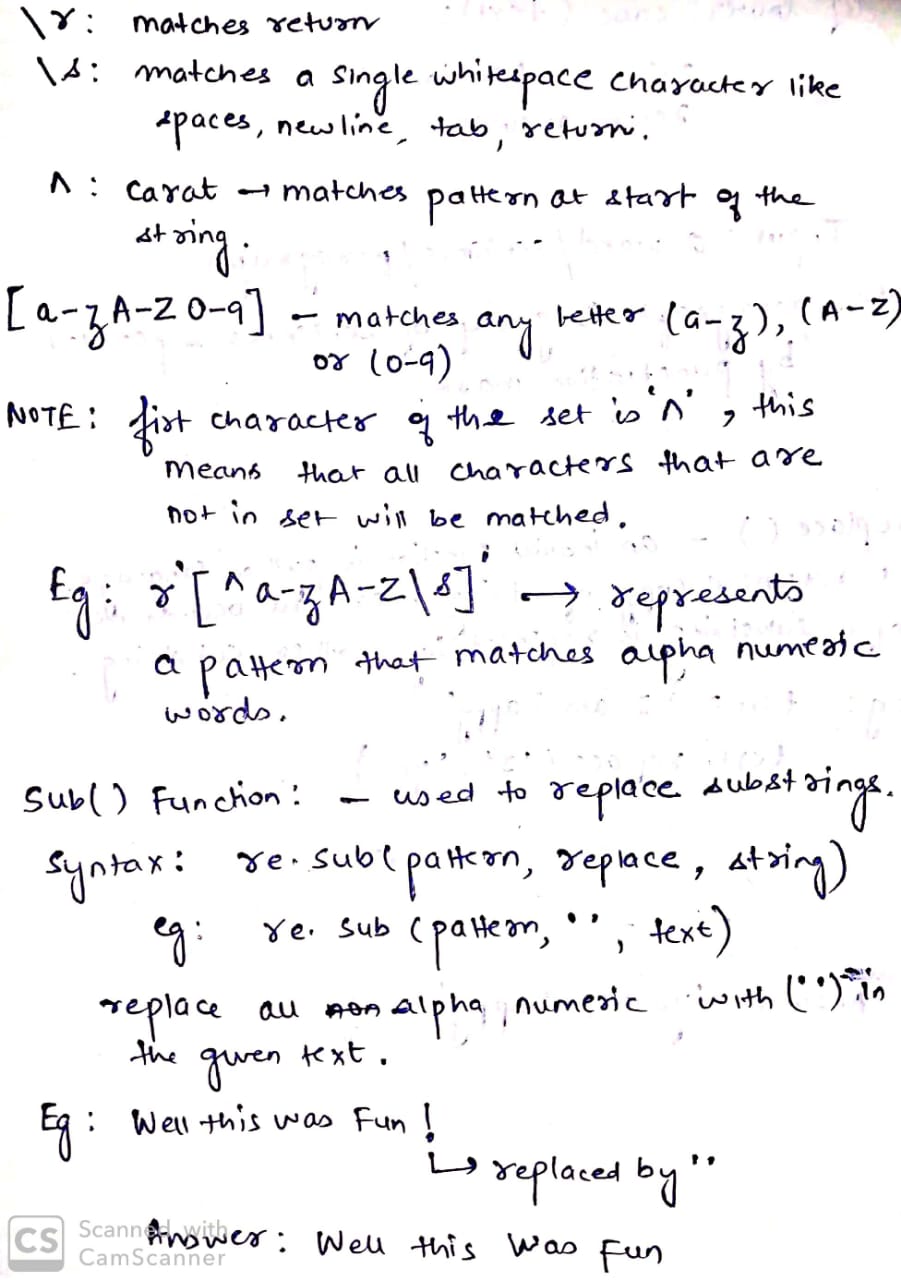 \r: matches return
\s: matches a single whitespace character like
spaces, newline, tab, return.
^: carat → matches pattern at start of the
string.
[a-zA-Z0-9] - matches any letter (a-z), (A-Z)
or (0-9)
NOTE: fist character of the set is '^', this
means that all characters that are
not in set will be matched.
Eg: r'[^a-zA-Z\s]' → represents
a pattern that matches alpha numeric
words.
Sub() Function: - used to replace substrings.
Syntax: re.sub(pattern, replace, string)
eg: re.sub(pattern, '', text)
replace all non alpha numeric with ('') in
the given text.
Eg: Well this was Fun!
↳ replaced by ''
Answer: Well this was fun
CS Scanned with
CamScanner